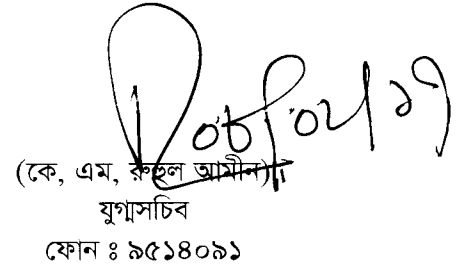 (কে, এম, রুহুল আমীন)
যুগ্মসচিব
ফোন ঃ ৯৫১৪০৯১